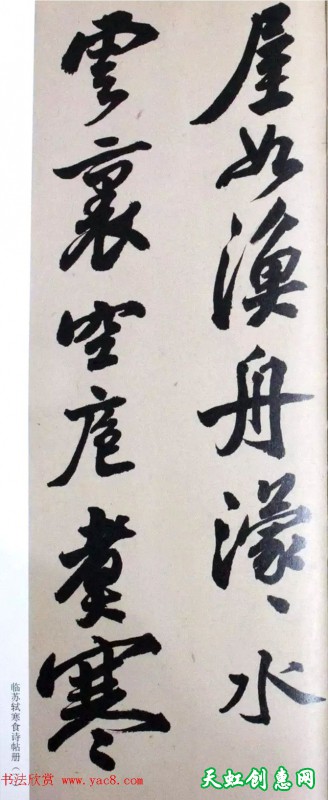 屋如漁舟濛〻水
雲裏空庖煮寒
临苏轼寒食诗帖册（
书法欣赏 www.yac8.com
天虹创惠网